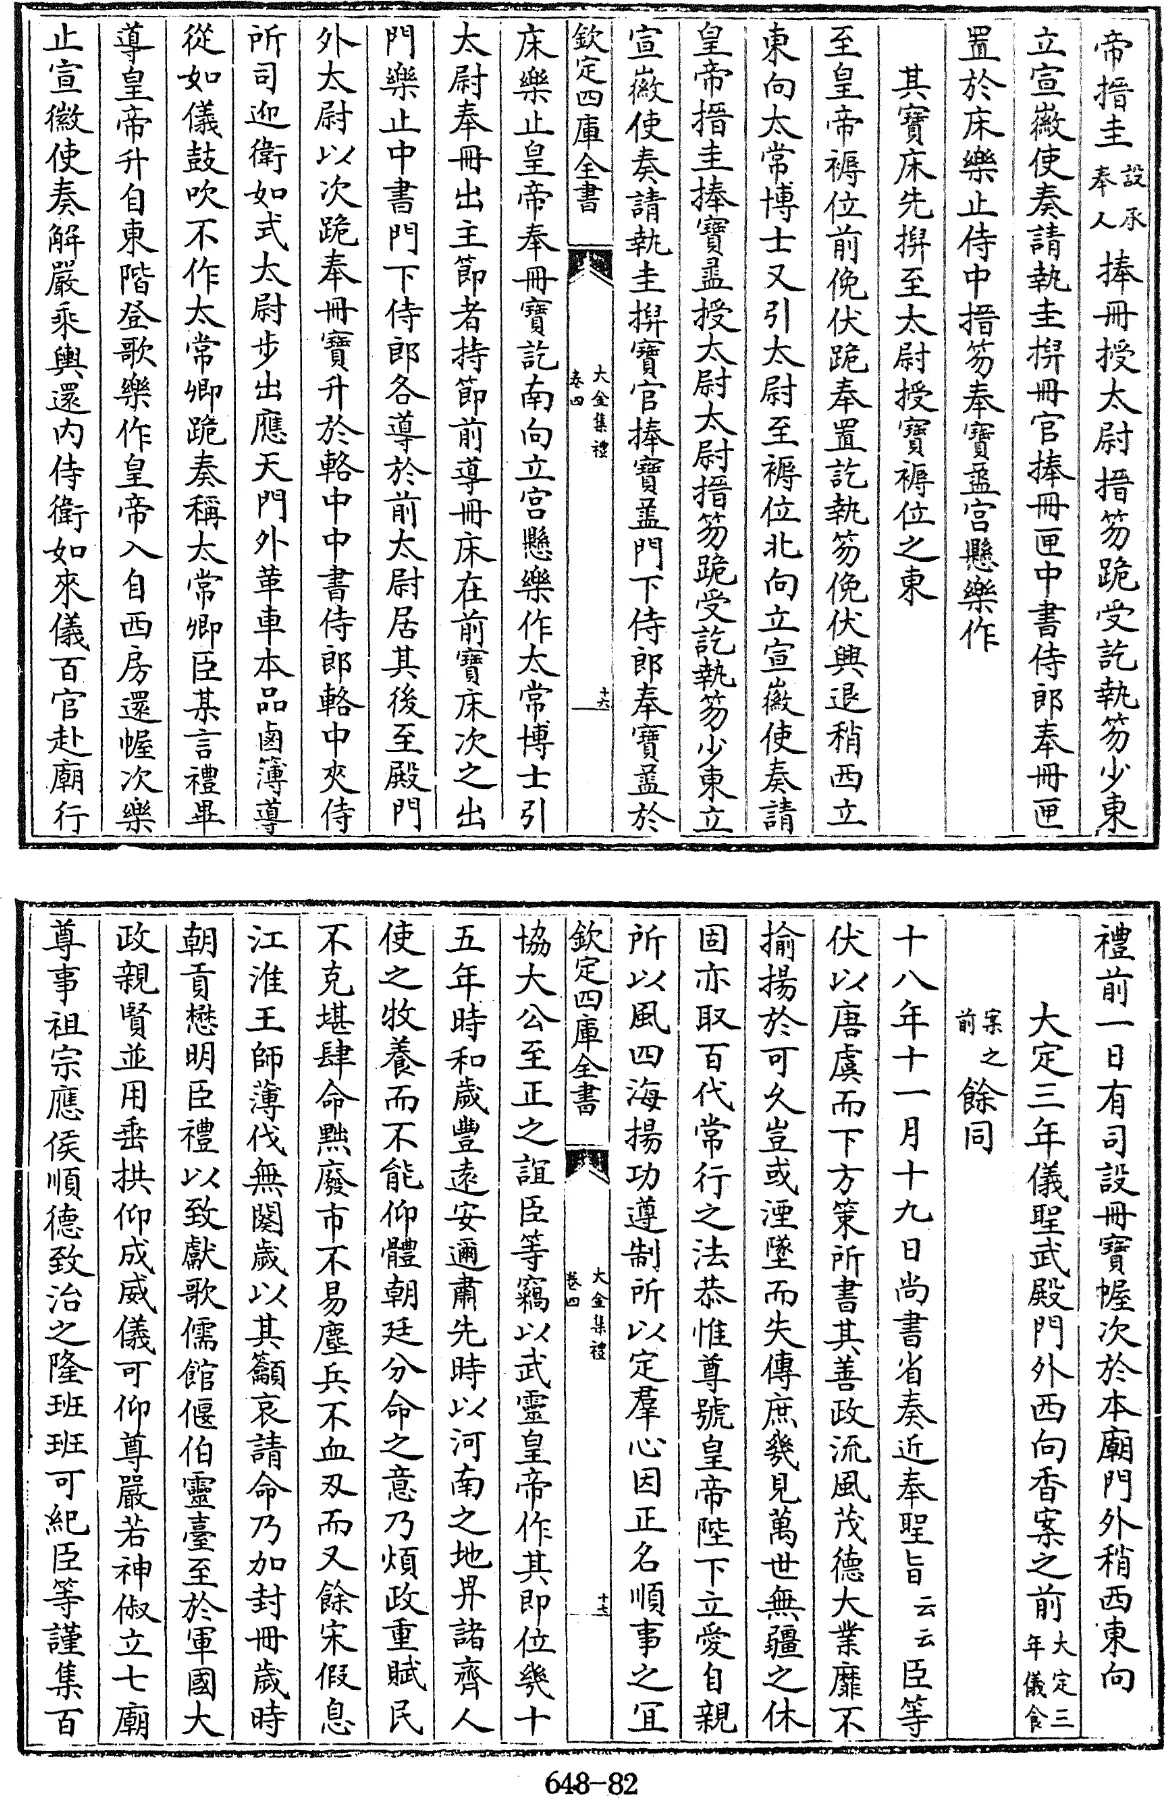 帝搢圭設承奉人捧冊授太尉搢笏跪受訖執笏少東
立宣徽使奏請執圭搿冊官捧冊匣中書侍郎奉冊匣
置於床樂止侍中搢笏奉寶盝宫懸樂作
其寶床先搿至太尉授寶褥位之東
至皇帝褥位前俛伏跪奉置訖執笏俛伏興退稍西立
東向太常博士又引太尉至褥位北向立宣徽使奏請
皇帝搢圭捧寶盝授太尉太尉搢笏跪受訖執笏少東立
宣徽使奏請執圭搿寶官捧寶盖門下侍郎奉寶盝於
欽定四庫全書
大金集禮
卷四
十六
床樂止皇帝奉冊寶訖南向立宫懸樂作太常博士引
太尉奉冊出主節者持節前導冊床在前寶床次之出
門樂止中書門下侍郎各導於前太尉居其後至殿門
外太尉以次跪奉冊寶升於輅中中書侍郎輅中夾侍
所司迎衛如式太尉步出應天門外革車本品鹵簿導
從如儀鼓吹不作太常卿跪奏稱太常卿臣某言禮畢
導皇帝升自東階登歌樂作皇帝入自西房還幄次樂
止宣徽使奏解嚴乘輿還内侍衛如來儀百官赴廟行
禮前一日有司設冊寶幄次於本廟門外稍西東向
大定三年儀聖武殿門外西向香案之前大定三年儀食
案之前餘同
十八年十一月十九日尚書省奏近奉聖旨云云臣等
伏以唐虞而下方策所書其善政流風茂德大業靡不
揄揚於可久豈或湮墜而失傳庶幾見萬世無疆之休
固亦取百代常行之法恭惟尊號皇帝陛下立愛自親
所以風四海揚功遵制所以定羣心因正名順事之宜
欽定四庫全書
大金集禮
卷四
十七
協大公至正之誼臣等竊以武靈皇帝作其即位幾十
五年時和歲豐遠安邇肅先時以河南之地畀諸齊人
使之牧養而不能仰體朝廷分命之意乃煩政重賦民
不克堪肆命黜廢市不易塵兵不血刃而又餘宋假息
江淮王師薄伐無闋歲以其籲哀請命乃加封冊歲時
朝貢懋明臣禮以致獻歌儒館偃伯靈臺至於軍國大
政親賢並用垂拱仰成威儀可仰尊嚴若神俶立七廟
尊事祖宗應侯順德致治之隆班班可紀臣等謹集百
648-82